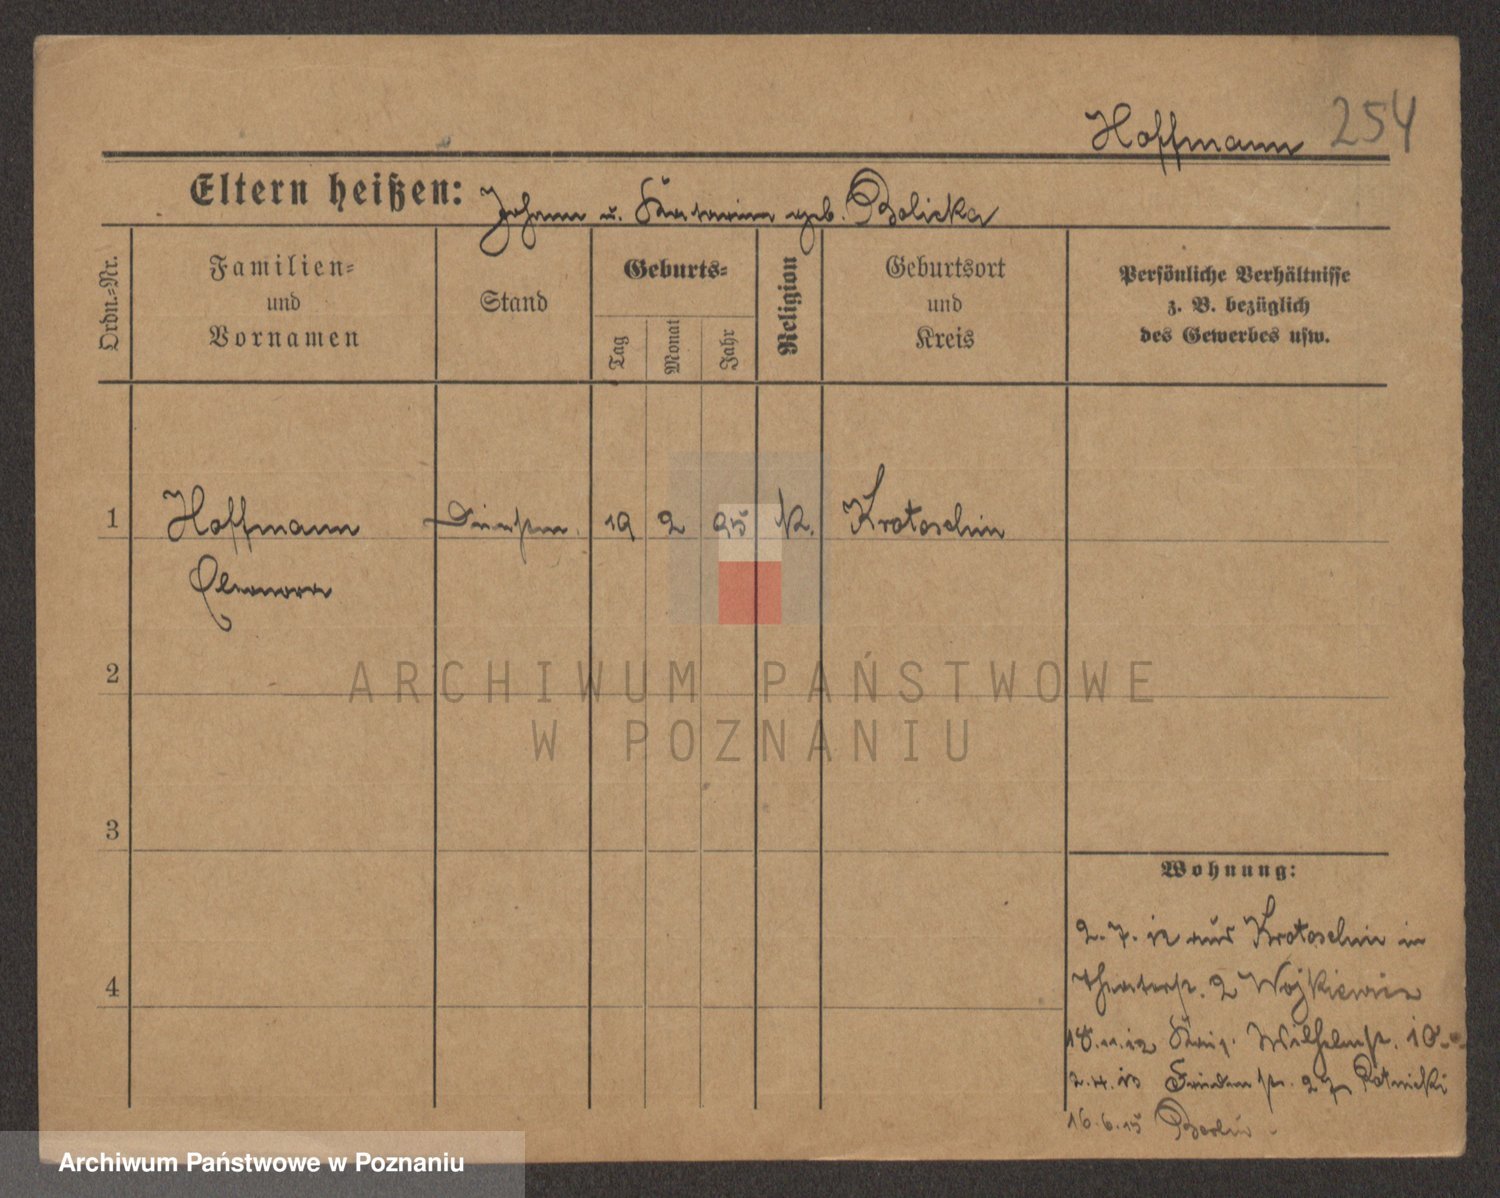 Hoffmann 254
Eltern heißen: Johann u. Katarina geb. Bolicka
Ordn.-Nr.
Familien-
und
Vornamen
Stand
Geburts-
Tag
Monat
Jahr
Religion
Geburtsort
und
Kreis
Persönliche Verhältnisse
z. B. bezüglich
des Gewerbes usw.
1 Hoffmann 19 2 95 K. Krotoschin
Eleonora
2
3
4
ARCHIWUM PAŃSTWOWE
W POZNANIU
Wohnung:
2.7.12 aus Krotoschin in
Theaterstr. 2 Wojkiewicz
18.11.12 Wilhelmstr. 10
2.4.13 27
16.6.15 Berlin
Archiwum Państwowe w Poznaniu